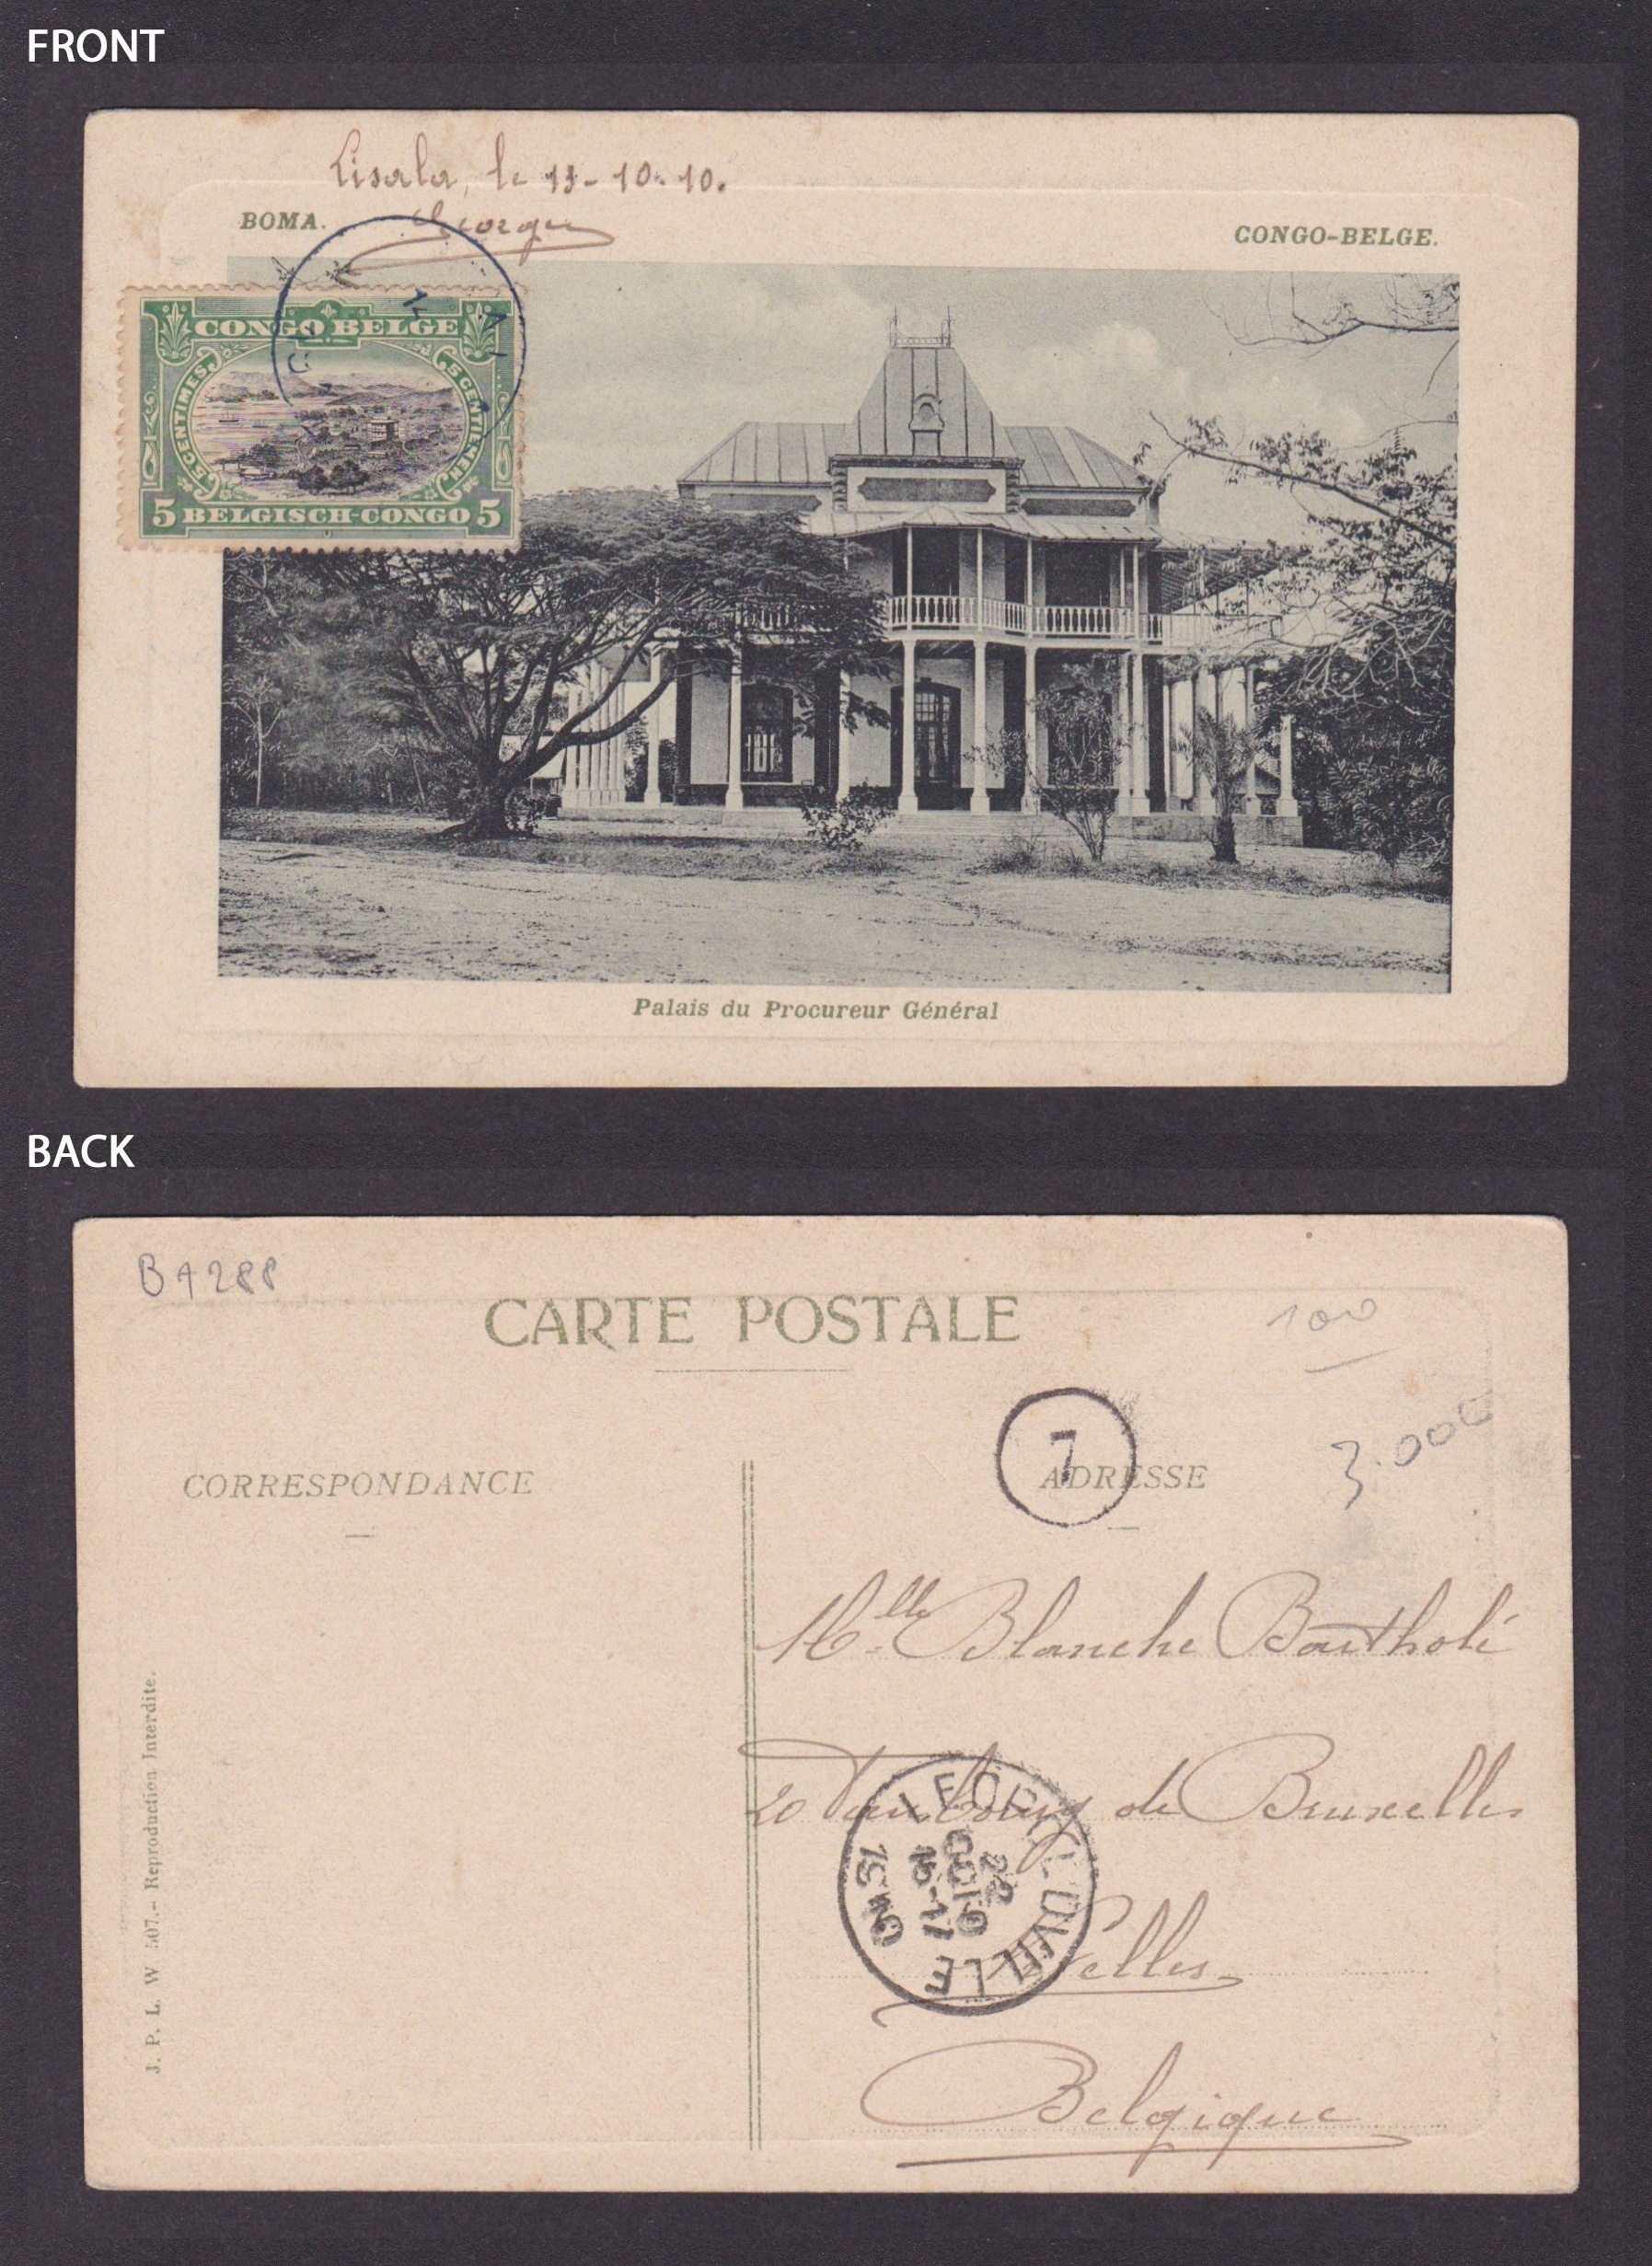 FRONT
Lisala, le 13-10-10.
Georges
BOMA.
CONGO-BELGE.
CONGO BELGE
5 CENTIMES
5 CENTIEMEN
5 BELGISCH-CONGO 5
Palais du Procureur Général
BACK
B4288
CARTE POSTALE
100
7
3.000
CORRESPONDANCE
ADRESSE
Mlle Blanche Bartholi
20 Faubourg de Bruxelles
LEOPOLDVILLE
22
OCT
16-17
1910
Belgique
J. P. L. W 507.- Reproduction Interdite.